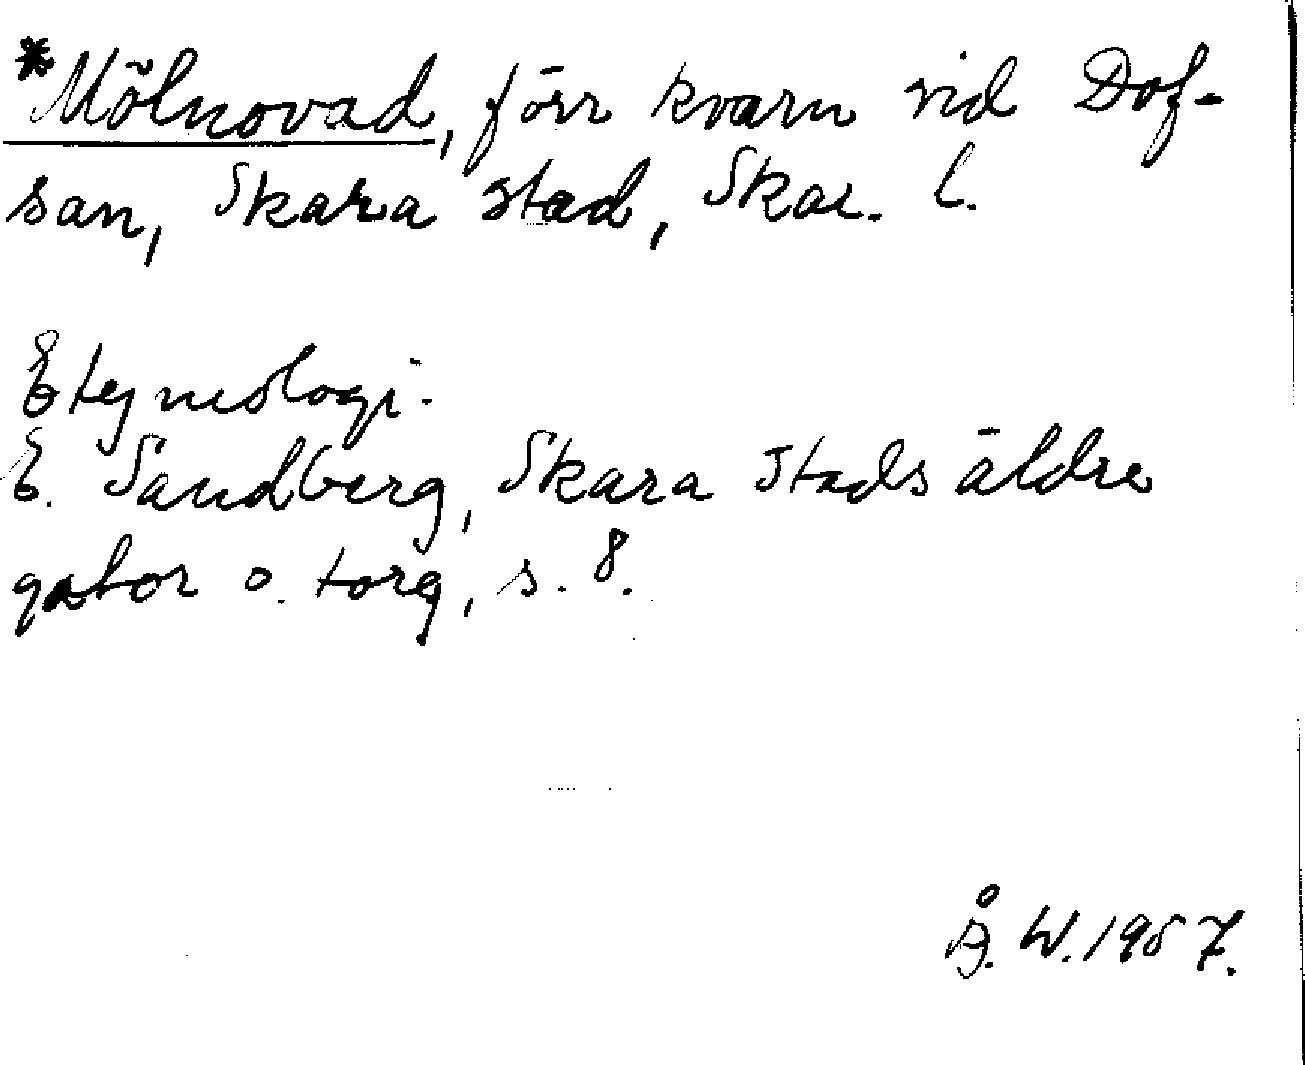 *Mölnovad, förr kvarn vid Dof-
san, Skara stad, Skar. l.
Etymologi.
E. Sandberg, Skara stads äldre
gator o. torg, s. 8.
Å. W. 1957.